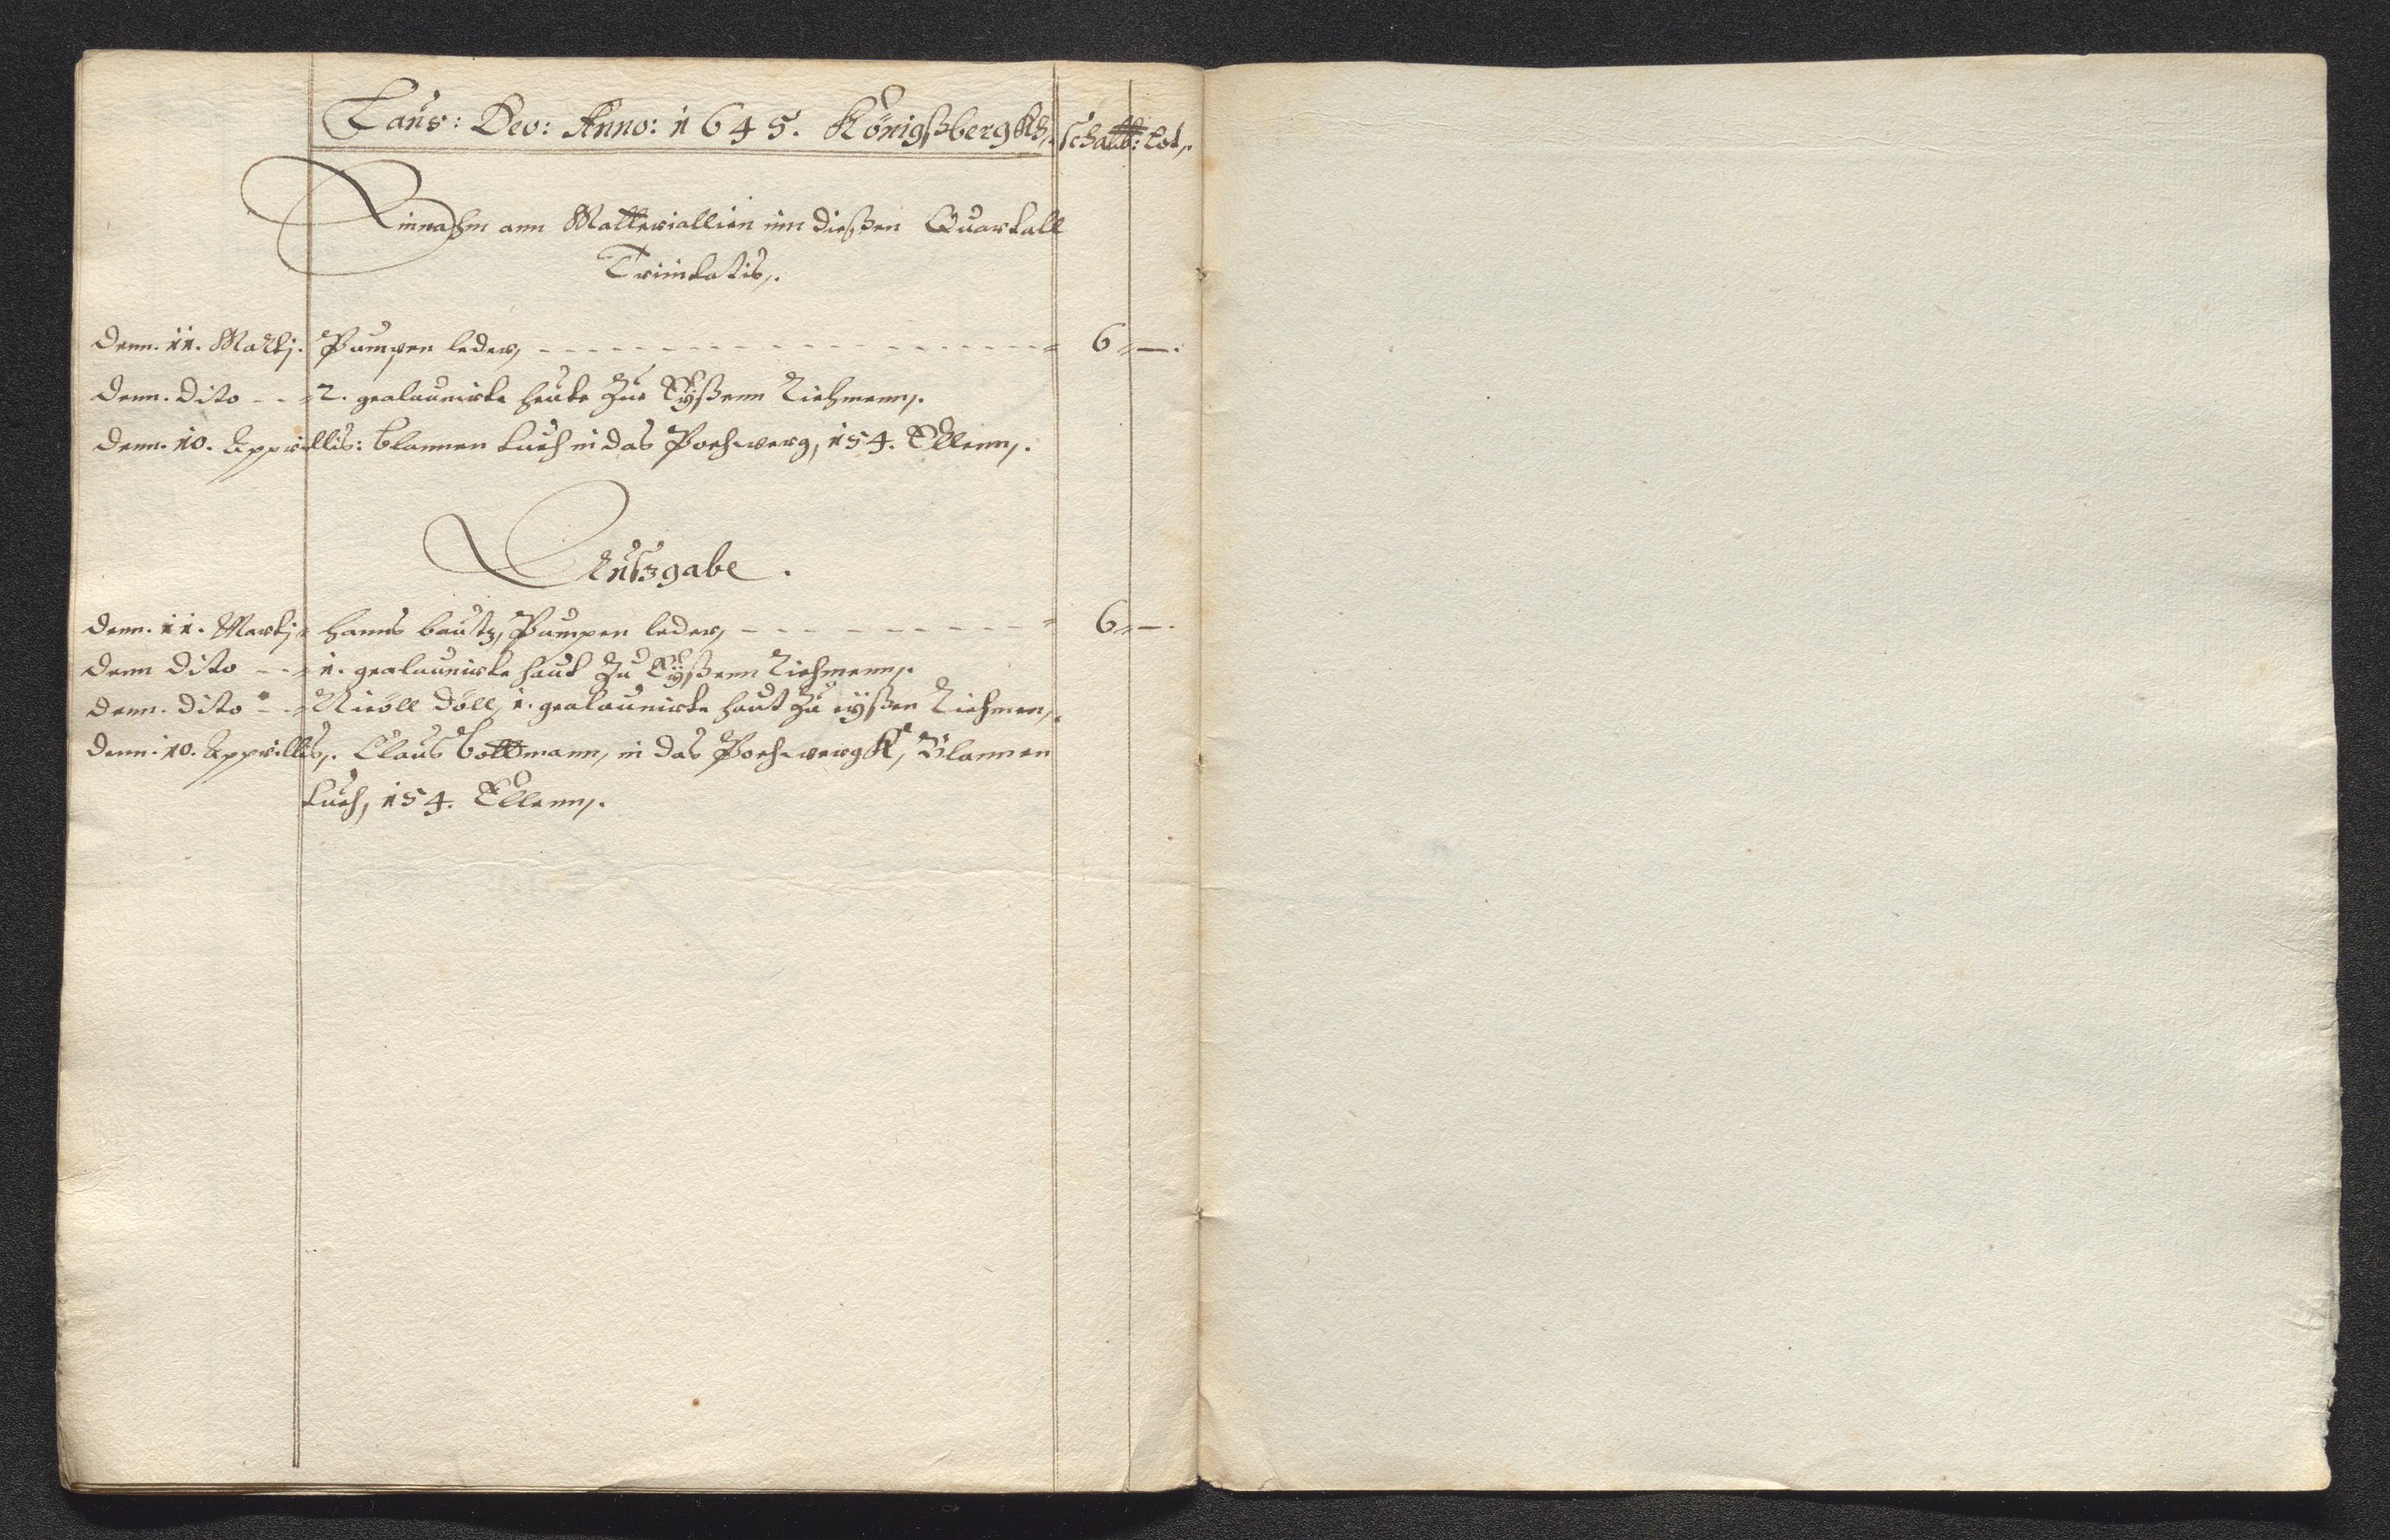 Laus: Deo: Anno: 1645. Königßbergkh,. Schalb: Lot,.
Einnahm ann Matteriallien inn dießen Quartall
Trinitatis,.
Denn. 11. Martj. Pumpen leder, 6 —.
Denn. Dito 2. gealaunirte heute Zue Riehmenn,.
Denn. 10. Apprillis: blannen tuch in das Pochwerg, 154. Ellenn,.
Ausgabe.
Denn. 11. Martj hanns bautz, Pumpen leder, 6 —.
Denn Dito 1. gealaunirte haut Zu Riehmenn,.
Denn. Dito Nicöll Döll, 1. gealaunirte haut Zu Riehmen,.
Denn. 10. Apprillis,. Claus bottmann, in das Pochwergk, Blannen
tuch, 154. Ellenn,.